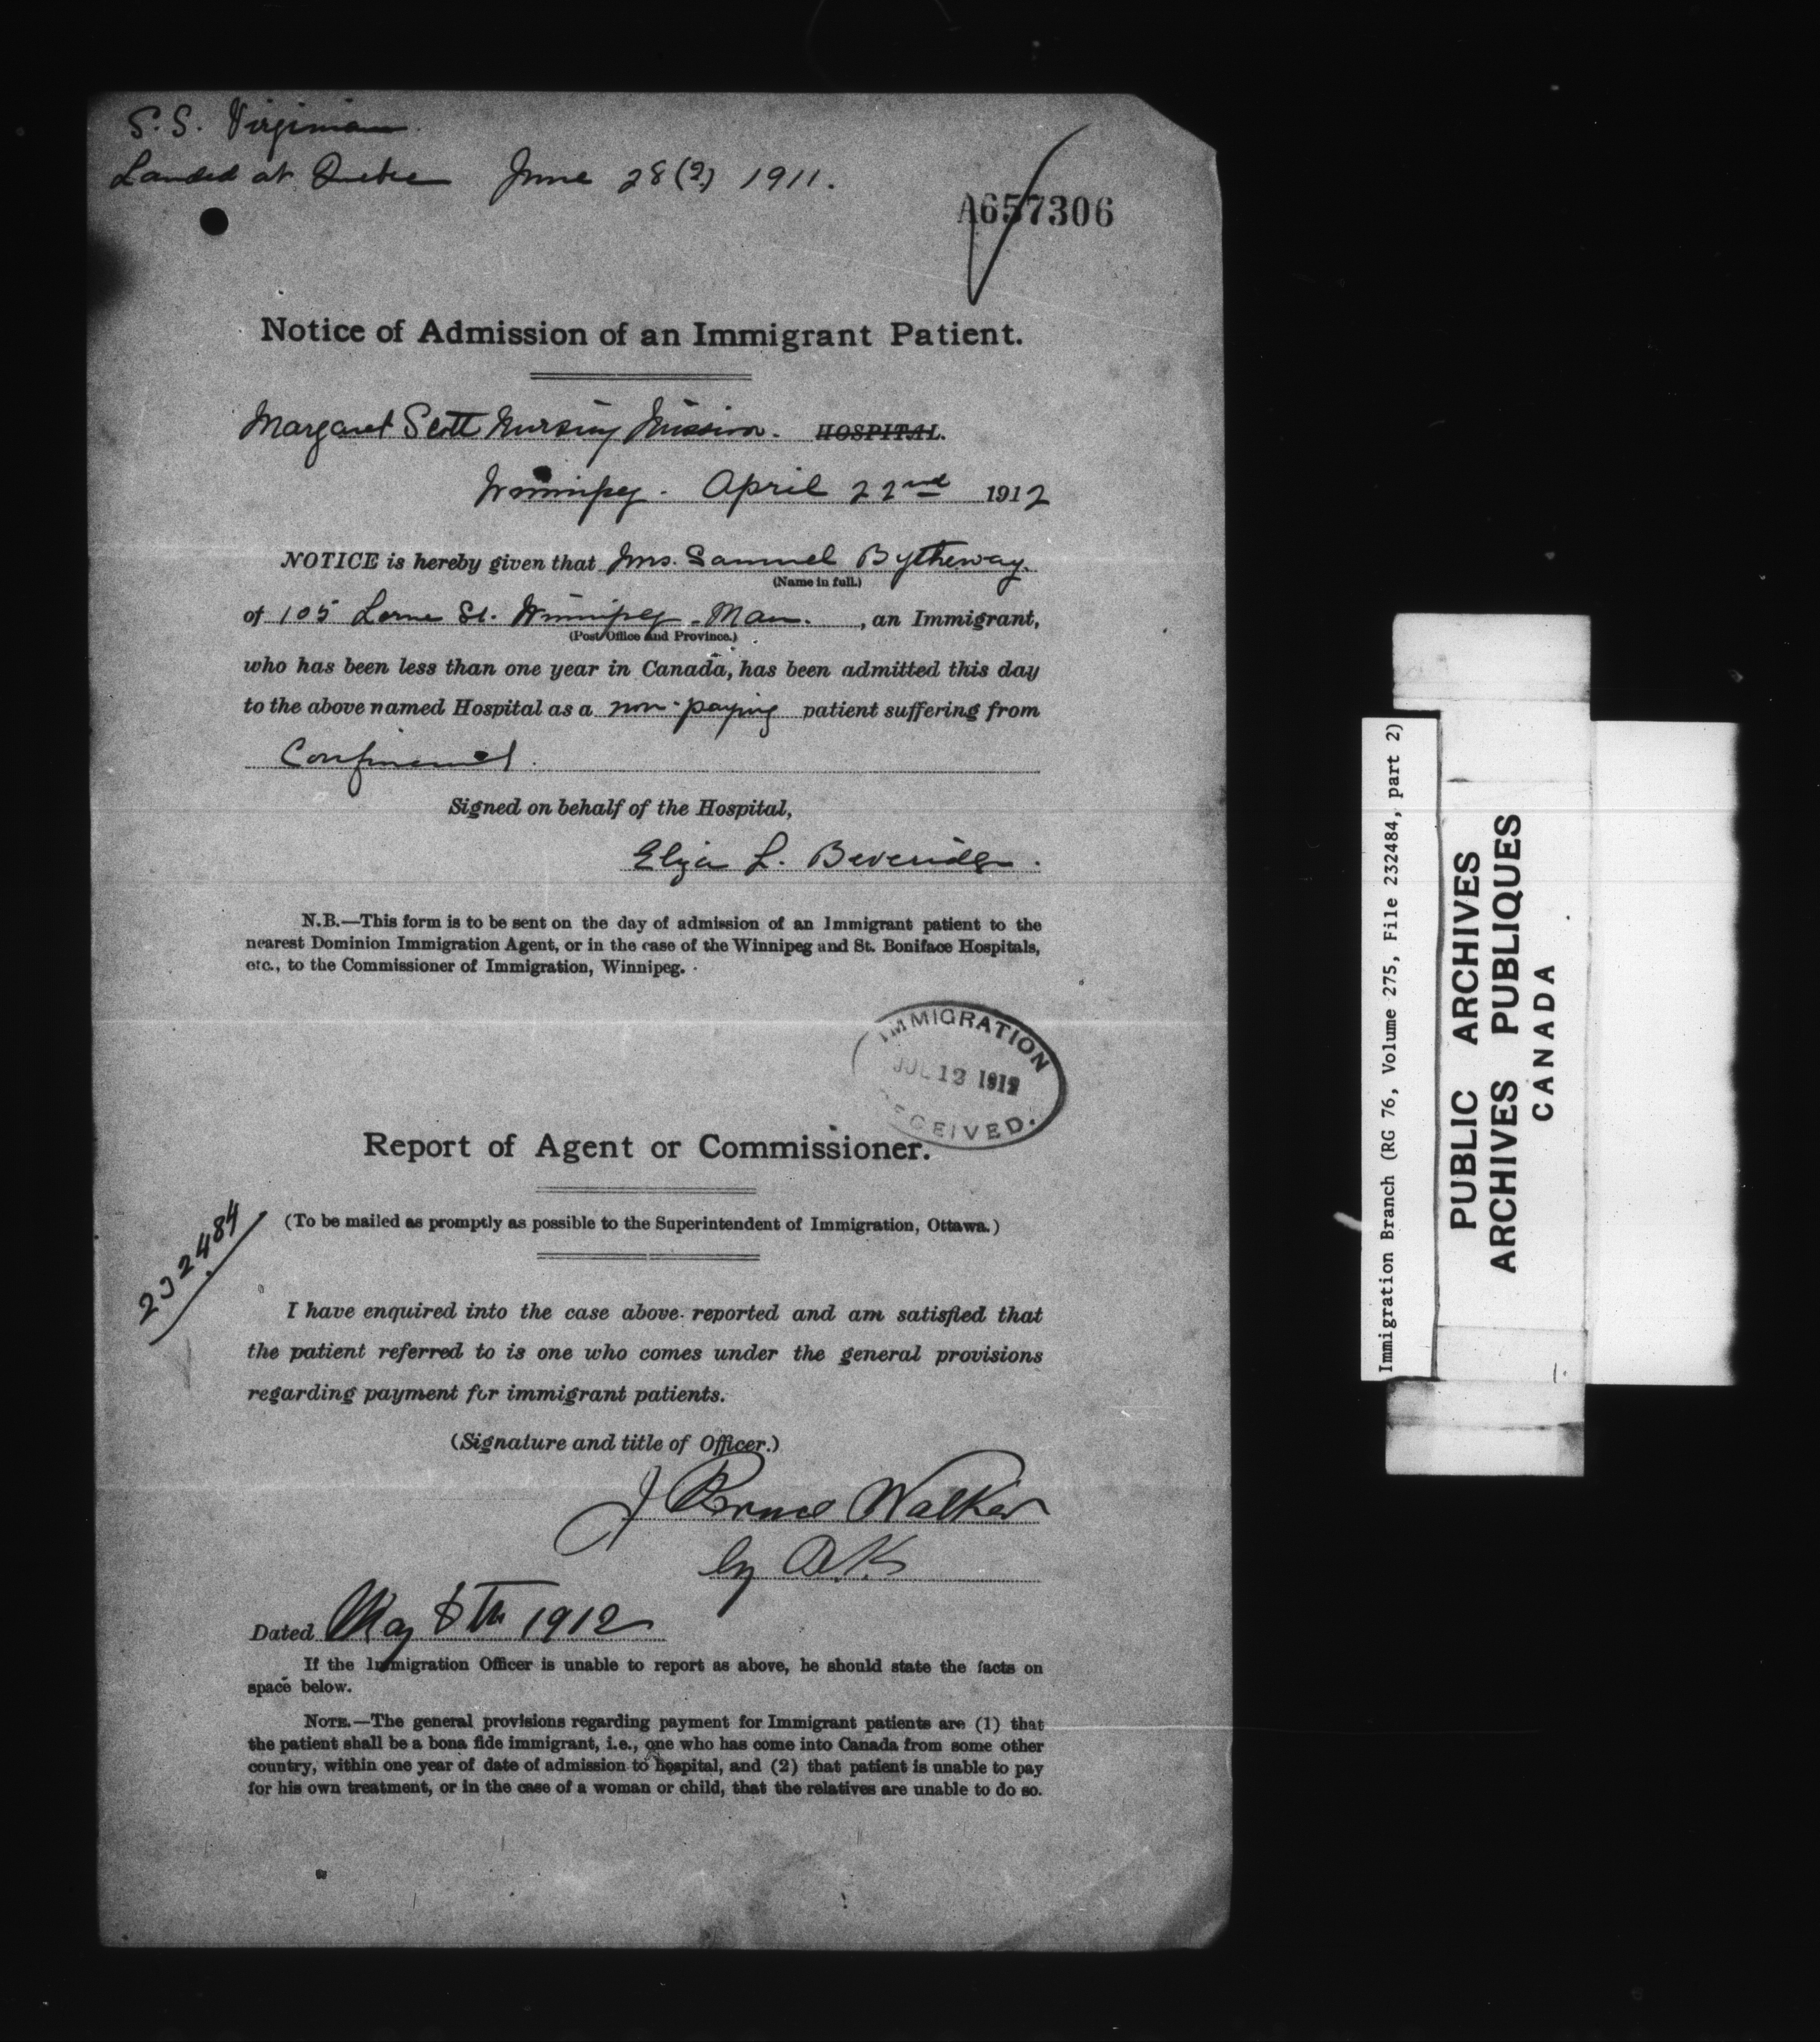 S.S. Virginian.
Landed at Quebec June 28 (?) 1911.
A657306
Notice of Admission of an Immigrant Patient.
Margaret Scott Nursing Mission. HOSPITAL.
Winnipeg. April 22nd 1912
NOTICE is hereby given that Mrs. Samuel Bytheway.
(Name in full.)
of 105 Lorne St. Winnipeg. Man. , an Immigrant,
(Post Office and Province.)
who has been less than one year in Canada, has been admitted this day
to the above named Hospital as a non-paying patient suffering from
Confinement.
Signed on behalf of the Hospital,
Eliza L. Beveridge.
N.B.—This form is to be sent on the day of admission of an Immigrant patient to the
nearest Dominion Immigration Agent, or in the case of the Winnipeg and St. Boniface Hospitals,
etc., to the Commissioner of Immigration, Winnipeg.
IMMIGRATION
JUL 12 1912
RECEIVED.
Report of Agent or Commissioner.
(To be mailed as promptly as possible to the Superintendent of Immigration, Ottawa.)
232484
I have enquired into the case above reported and am satisfied that
the patient referred to is one who comes under the general provisions
regarding payment for immigrant patients.
(Signature and title of Officer.)
J Bruce Walker
by A.K.
Dated May 8th 1912
If the Immigration Officer is unable to report as above, he should state the facts on
space below.
NOTE.—The general provisions regarding payment for Immigrant patients are (1) that
the patient shall be a bona fide immigrant, i.e., one who has come into Canada from some other
country, within one year of date of admission to hospital, and (2) that patient is unable to pay
for his own treatment, or in the case of a woman or child, that the relatives are unable to do so.
Immigration Branch (RG 76, Volume 275, File 232484, part 2)
PUBLIC ARCHIVES
ARCHIVES PUBLIQUES
CANADA